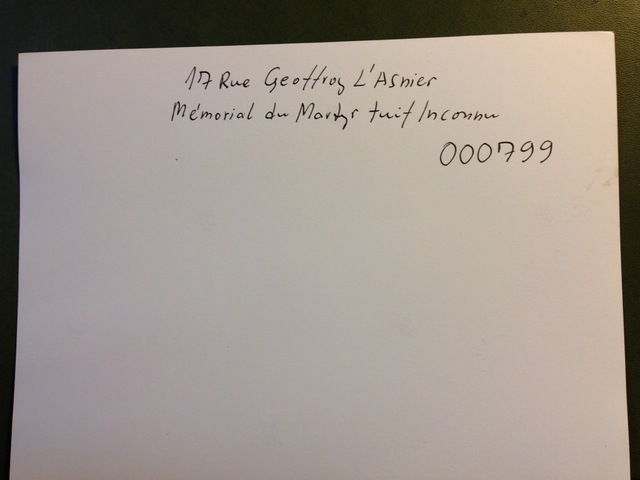 17 Rue Geoffroy L'Asnier
Mémorial du Martyr Juif Inconnu
000799